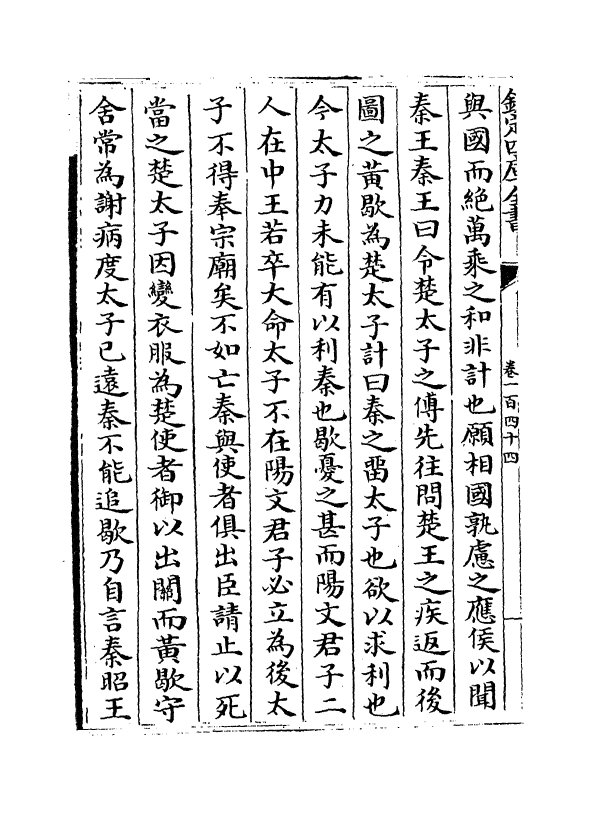 欽定四庫全書
卷一百四十四
與國而絶萬乘之和非計也願相國孰慮之應侯以聞
秦王秦王曰令楚太子之傅先往問楚王之疾返而後
圖之黃歇為楚太子計曰秦之畱太子也欲以求利也
今太子力未能有以利秦也歇憂之甚而陽文君子二
人在中王若卒大命太子不在陽文君子必立為後太
子不得奉宗廟矣不如亡秦與使者俱出臣請止以死
當之楚太子因變衣服為楚使者御以出關而黃歇守
舍常為謝病度太子已遠秦不能追歇乃自言秦昭王